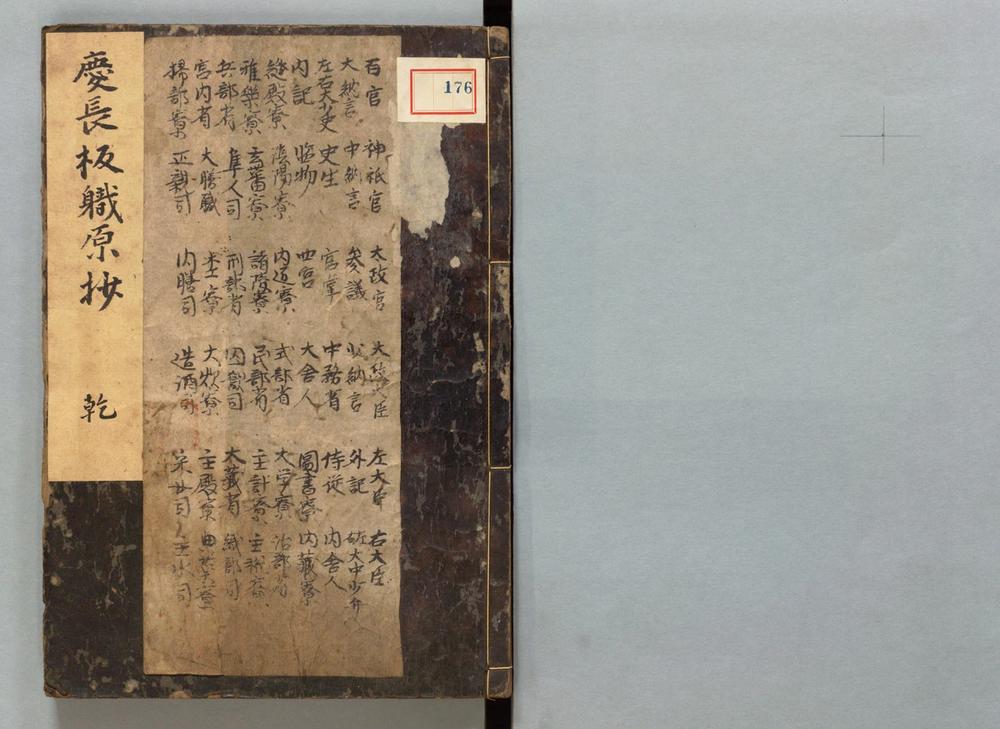 176
百官 神祇官 太政官 太政大臣 左大臣 右大臣
大納言 中納言 參議 少納言 外記 左大中少弁
左右大少史 史生 官掌 中務省 侍従 内舎人
内記 監物 四宮 大舎人 圖書寮 内蔵寮
縫殿寮 陰陽寮 内匠寮 式部省 大学寮 治部省
雅樂寮 玄蕃寮 諸陵寮 民部省 主計寮 主税寮
兵部省 隼人司 刑部省 囚獄司 大蔵省 織部司
宮内省 大膳職 木工寮 大炊寮 主殿寮 典薬寮
掃部寮 正親司 内膳司 造酒司 采女司 主水司
慶長板軄原抄 乾